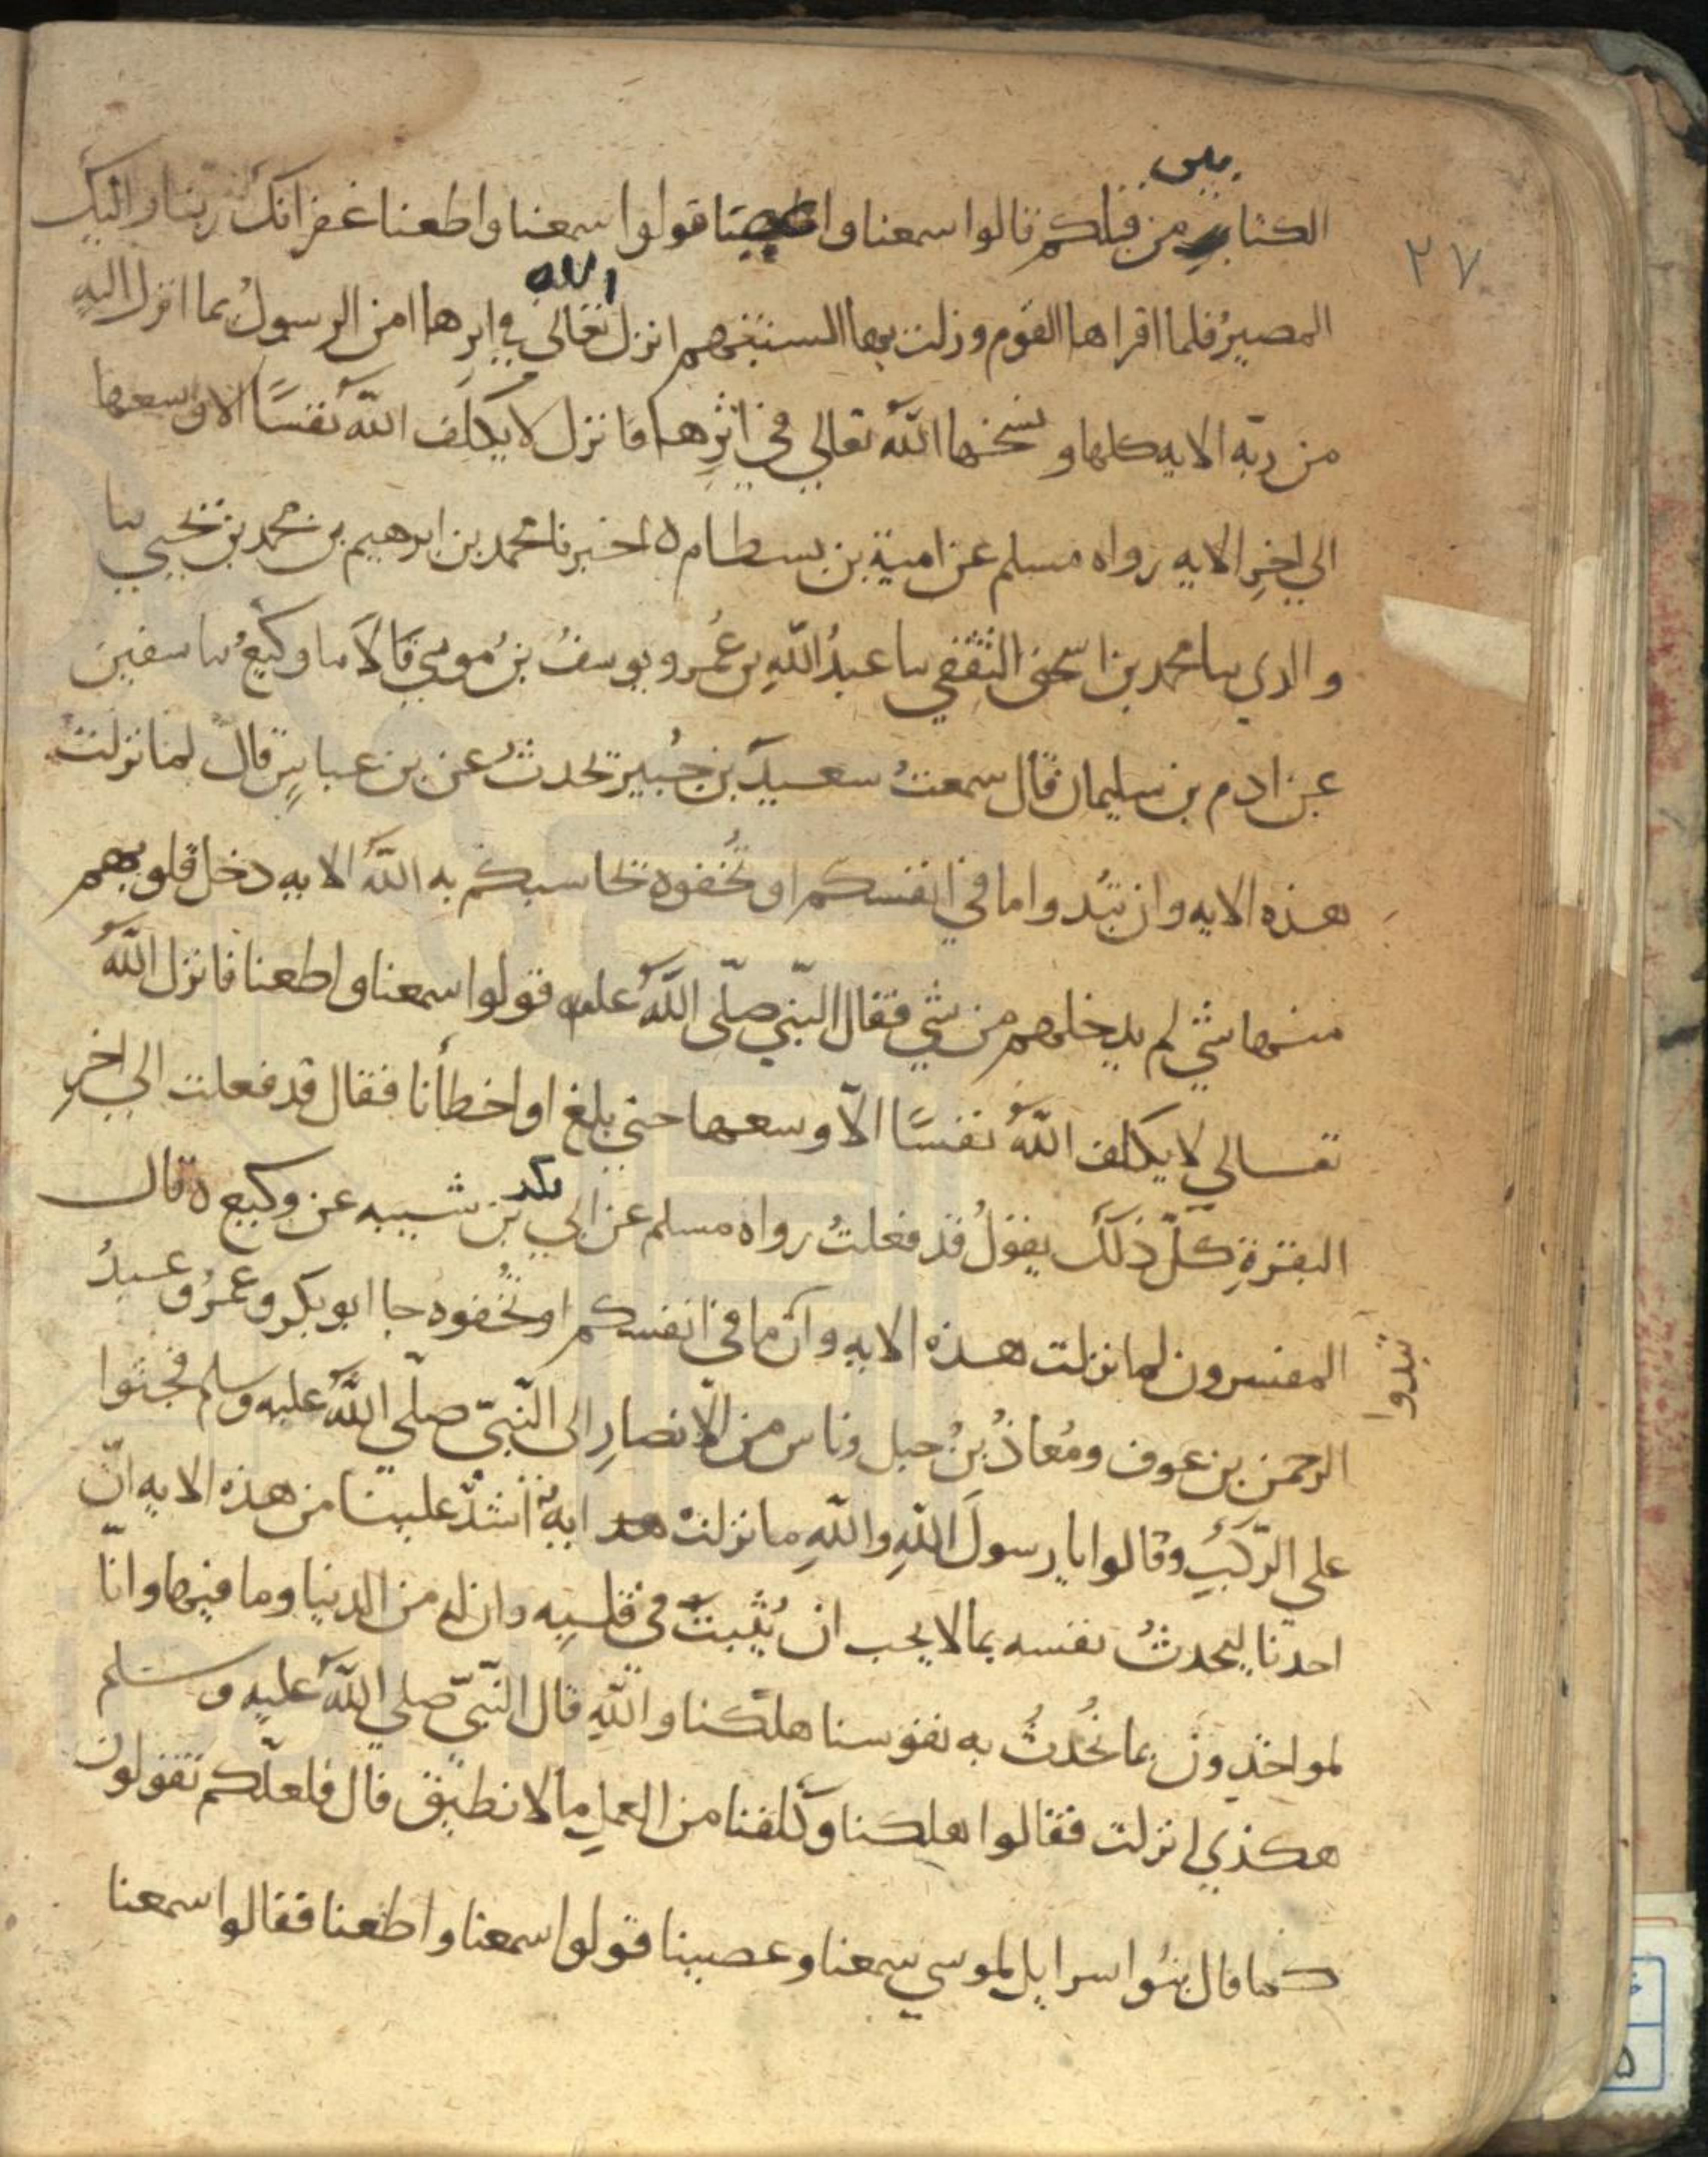 بين
الكتابين من قبلكم قالوا سمعنا وعصينا قولوا سمعنا واطعنا غفرانك ربنا واليك
٢٧
المصيرُ فلما اقراها القوم وزلت بها السنتهم انزل الله تعالي في اثرها امن الرسولُ بما انزل اليه
من ربّه الايه كلها ونسخها اللهُ تعالي في اثرِها فانزل لا يكلف اللهُ نفسًا الا وسعها
الي اخرِ الايه رواه مسلم عن امية بن بسطام ه اخبرنا محمد بن ابرهيم بن محمد بن يحيي نبا
والدي نبا محمد بن اسحق الثقفي نبا عبدُ اللهِ بن عُمر ويوسفُ بنُ موسي قالَا نبا وكيعُ نبا سفين
عن ادم بن سليمان قال سمعتُ سعيدَ بن جُبير يحدثُ عن بن عباسٍ قال لما نزلت
هذه الايه وان تبُدوا ما في انفسكم او تُخفوه يحاسبكم به اللهُ الايه دخل قلوبهم
منها شي لم يدخلهم من شي فقال النبّي صلّى اللهُ عليه قولوا سمعنا واطعنا فانزل اللهُ
تعالي لا يكلف اللهُ نفسًا الّا وسعها حتي بلغ او اخطأنا فقال قد فعلت الي اخرِ
البقرةِ كلّ ذلكَ يقولُ قد فعلتُ رواه مسلم عن ابي بكر بن شيبه عن وكيع ه قال
المفسرون لما نزلت هذه الايه وان ما في انفسكم او تُخفوه جا ابو بكر وعُمرُ وعبدُ
تبدوا
الرحمن بن عوف ومُعاذُ بنُ جبل وناس من الانصارِ الى النّبيّ صلّي اللهُ عليه وسلم فجثوا
علي الرّكَبِ وقالوا يا رسولَ اللهِ واللهِ ما نزلتْ ايةٌ اشدّ علينا من هذه الايه انّ
احدنا ليحدثُ نفسه بما لا يحب ان يُثبتَ في قلبِه وان له من الدنيا وما فيها وانّا
لمواخذون بما نُحدثُ به نفوسنا هلكنا واللهِ قال النّبيّ صلي اللهُ عليه وسلم
هكذي انزلت فقالوا هلكنا وكلفنا من العملِ ما لا نطيق قال فلعلّكم تقولون
كما قال بنُوا اسرايل لموسي سمعنا وعصينا قولوا سمعنا واطعنا فقالوا سمعنا